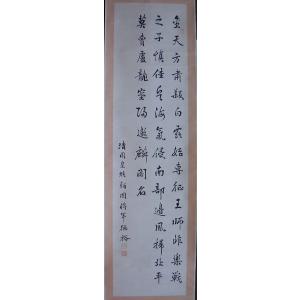 金天方肅殺白露始專征王師非樂戰
之子慎佳兵海氣侵南部邊風掃北平
莫賣盧龍塞歸邀麟閣名
國皇族 國將軍